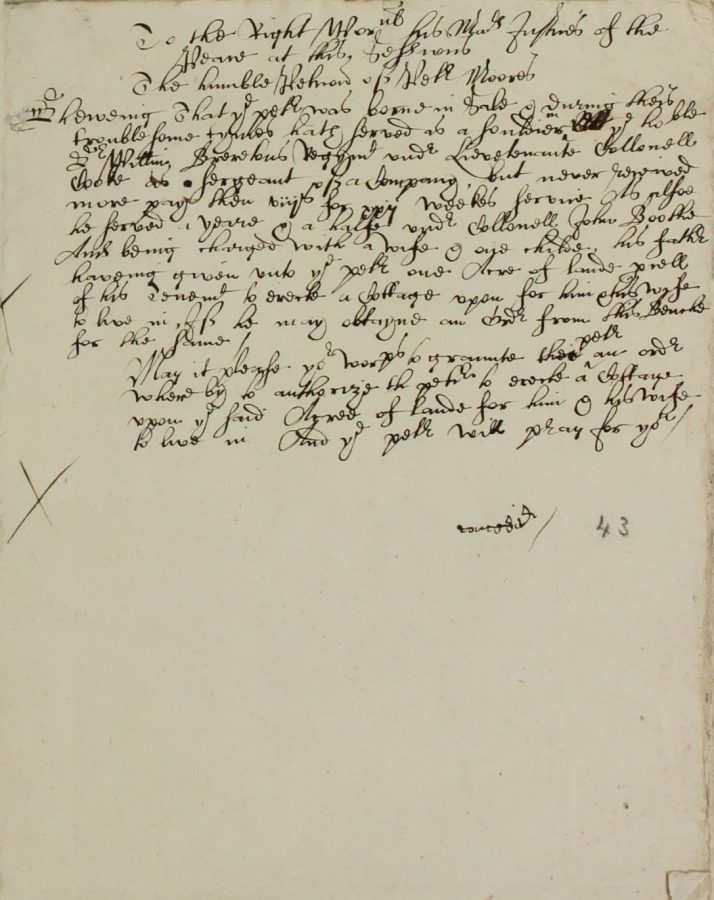 To the Right Worll his Mats Justices of the
Peace at this Sessions
The humble Peticon of Petr Moores
Sheweing That yr petr was borne in Sale & during theis
troublesome tymes hath served as a souldier in ye ho:ble
Sr Willm Breretons Regymt undr Lievetenante Collonell
Coote as a sergeant of a Company, but never received
more paye then for weekes service As alsoe
he served a yeare & a halfe undr Collonell John Boothe
And being charged with a wife & one childe, his fathr
haveing given unto yr petr one Acre of lande p'cell
of his Tenemt to erecte a Cottage upon for him & his wife
to live in, If he may obtayne an Ordr from this Bench
for the same /
May it please yor worps to graunte the petr an ordr
whereby to authorize th petr to erecte a Cottage
upon ye said Acree of lande for him & his wife
to live in And yr petr will pray for yor /
conceditr / 43